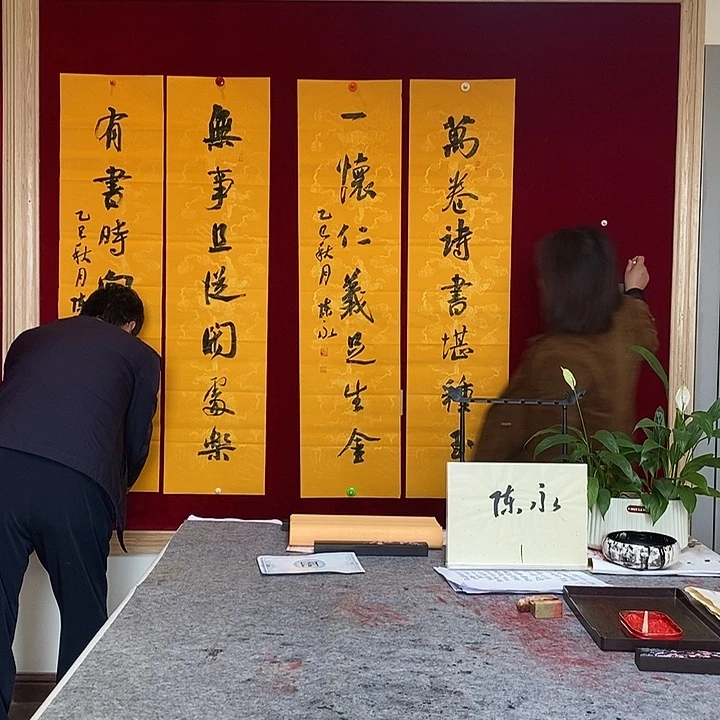 萬卷詩書堪種玉
一懷仁義足生金
乙巳秋月 陈永
無事且從閑處樂
有書時向
乙巳秋月 陈
陈永